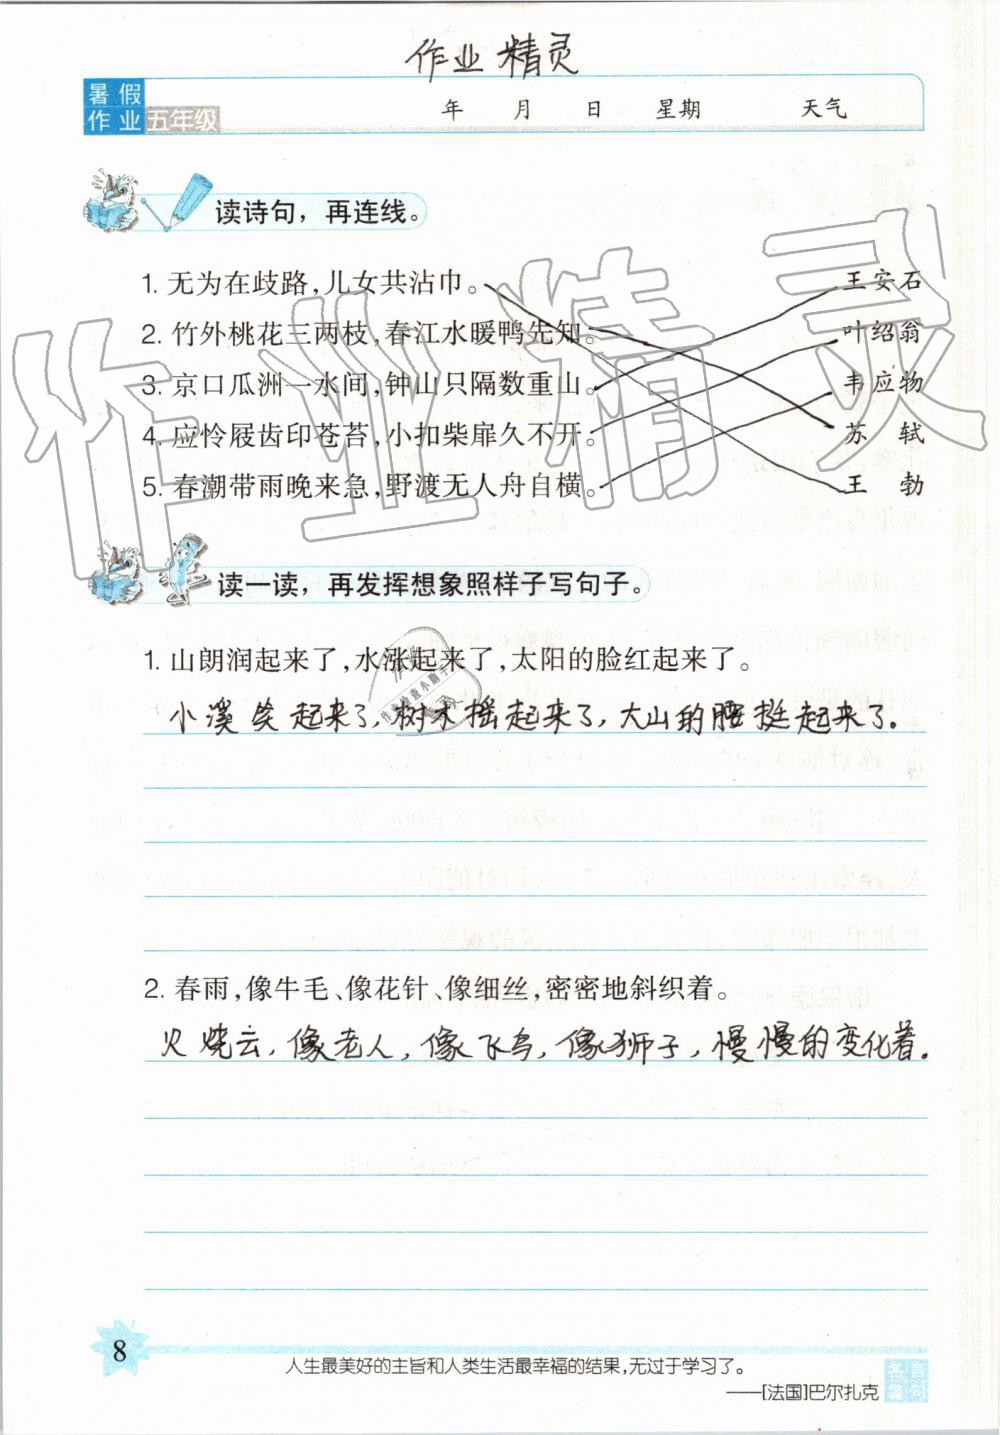 作业精灵
暑假
作业 五年级
年 月 日 星期 天气
读诗句，再连线。
1. 无为在歧路，儿女共沾巾。 王安石
2. 竹外桃花三两枝，春江水暖鸭先知。 叶绍翁
3. 京口瓜洲一水间，钟山只隔数重山。 韦应物
4. 应怜屐齿印苍苔，小扣柴扉久不开。 苏 轼
5. 春潮带雨晚来急，野渡无人舟自横。 王 勃
作业精灵
读一读，再发挥想象照样子写句子。
1. 山朗润起来了，水涨起来了，太阳的脸红起来了。
小溪笑起来了，树木摇起来了，大山的腰挺起来了。
2. 春雨，像牛毛、像花针、像细丝，密密地斜织着。
火烧云，像老人，像飞鸟，像狮子，慢慢的变化着。
8
人生最美好的主旨和人类生活最幸福的结果，无过于学习了。
——[法国]巴尔扎克
名言
警句